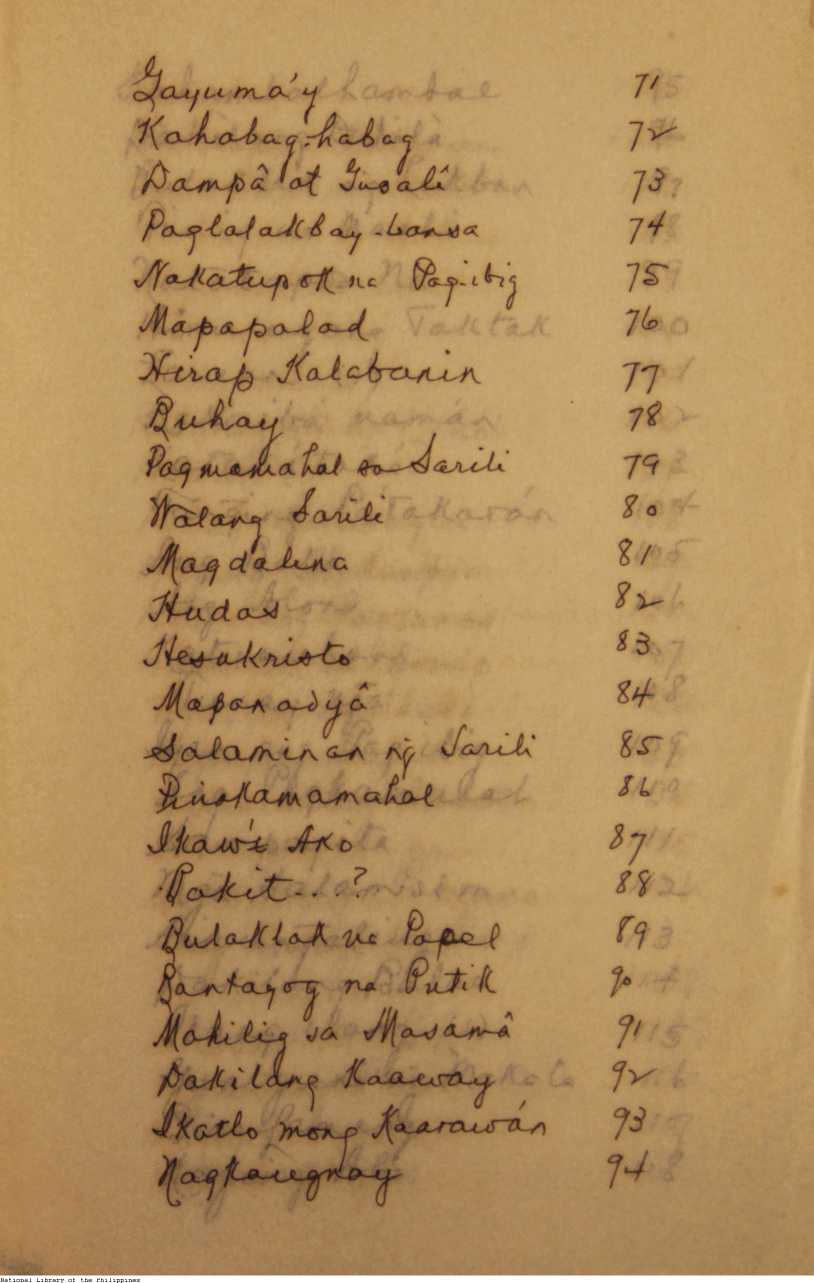 Gayuma'y 71
Kahabag-habag 72
Dampâ at Gusalî 73
Paglalakbay-bansa 74
Nakatupok na Pag-ibig 75
Mapapalad 76
Hirap Kalabanin 77
Buhay 78
Pagmamahal sa Sarili 79
Walang Sarili 80
Magdalena 81
Hudas 82
Hesukristo 83
Mapanadyâ 84
Salaminan ng Sarili 85
Pinakamamahal 86
Ikaw't Ako 87
Bakit...? 88
Bulaklak na Papel 89
Bantayog na Putik 90
Mahilig sa Masamâ 91
Dakilang Kaaway 92
Ikatlo mong Kaarawán 93
Nagkaugnay 94
National Library of the Philippines